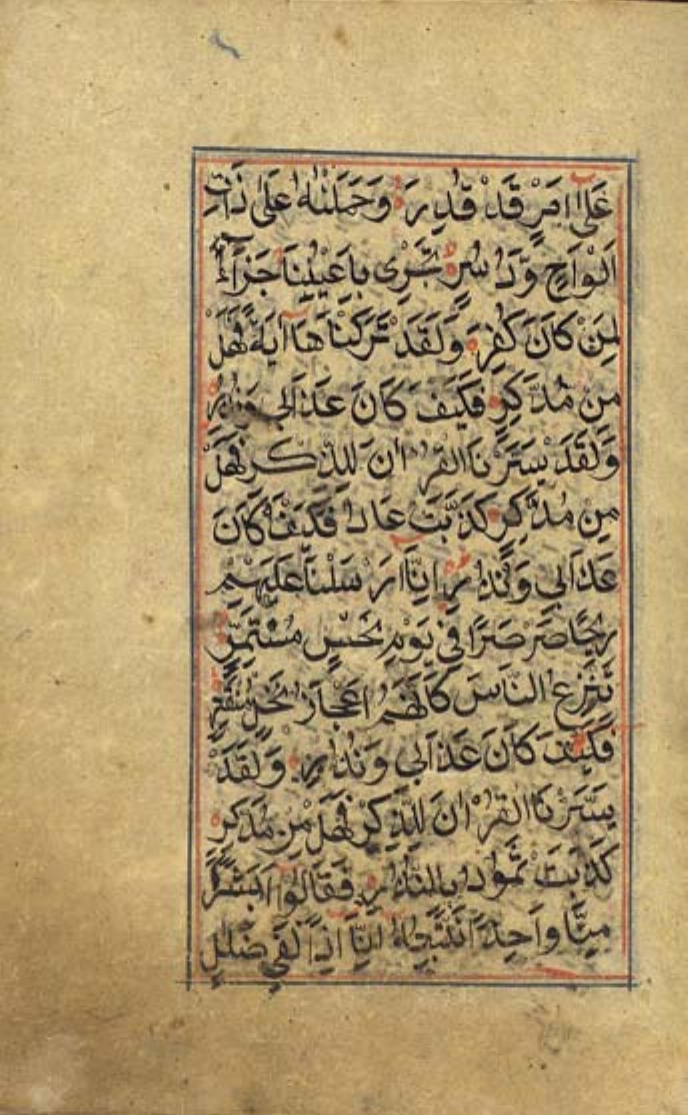 عَلَىٰ اَمْرٍ قَدْ قُدِرَ وَحَمَلْنٰهُ عَلٰى ذَاتِ
اَلْوَاحٍ وَّدُسُرٍ تَجْرِى بِاَعْيُنِنَا جَزَآءً
لِمَنْ كَانَ كُفِرَ وَلَقَدْ تَرَكْنَاهَا اٰيَةً فَهَلْ
مِنْ مُدَّكِرٍ فَكَيْفَ كَانَ عَذَابِى وَنُذُرِ
وَلَقَدْ يَسَّرْنَا الْقُرْاٰنَ لِلذِّكْرِ فَهَلْ
مِنْ مُدَّكِرٍ كَذَّبَتْ عَادٌ فَكَيْفَ كَانَ
عَذَابِى وَنُذُرِ اِنَّا اَرْسَلْنَا عَلَيْهِمْ
رِيْحًا صَرْصَرًا فِى يَوْمِ نَحْسٍ مُسْتَمِرٍّ
تَنْزِعُ النَّاسَ كَاَنَّهُمْ اَعْجَازُ نَخْلٍ مُنْقَعِرٍ
فَكَيْفَ كَانَ عَذَابِى وَنُذُرِ وَلَقَدْ
يَسَّرْنَا الْقُرْاٰنَ لِلذِّكْرِ فَهَلْ مِنْ مُدَّكِرٍ
كَذَّبَتْ ثَمُوْدُ بِالنُّذُرِ فَقَالُوْا اَبَشَرًا
مِنَّا وَاحِدًا نَتَّبِعُهٗ اِنَّا اِذًا لَفِى ضَلٰلٍ